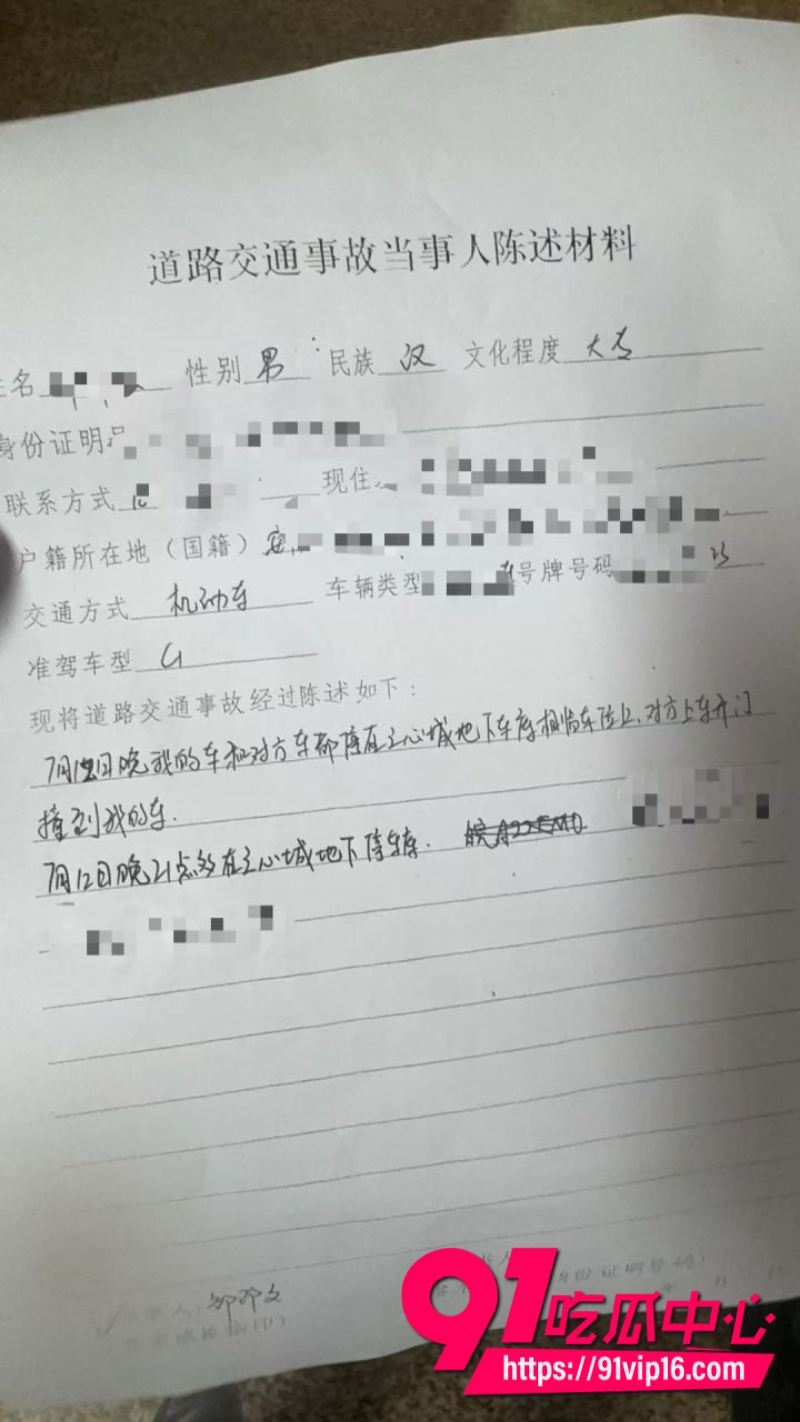 道路交通事故当事人陈述材料
姓名 性别 男 民族 汉 文化程度 大专
身份证明
联系方式 现住
户籍所在地（国籍）安
交通方式 机动车 车辆类型 号牌号码
准驾车型 C1
现将道路交通事故经过陈述如下：
7月12日晚我的车和对方车都停在之心城地下车库相临车位上，对方上车开门
撞到我的车.
7月12日晚21点多在之心城地下停车库.
91吃瓜中心
https://91vip16.com